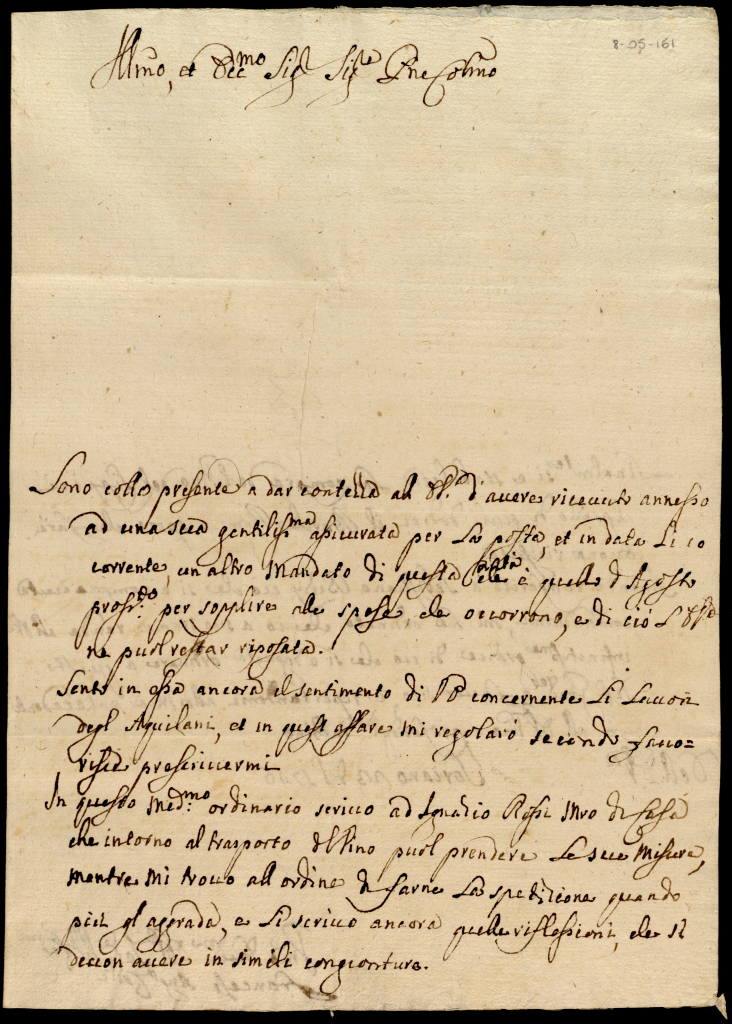 8-05-161
Illmo, et Sig.r Sig.re Pne Colmo
Sono collo presente a dar contezza all d'avere ricevuto annesso
ad una sua gentiliss.ma assicurata per la posta, et in data li 10
corrente, un altro Mandato di questa rata che è quella d'Agosto
pross.o per supplire alle spese, che occorrono, e di ciò
ne puol restar riposata.
Sento in essa ancora il sentimento di concernente li lavori
degl'Aquilani, et in quest'affare mi regolarò secondo favo=
risce prescrivermi
In questo med.mo ordinario scrivo ad Ignazio Rossi Mro di Casa
che intorno al trasporto del Vino puol prendere le sue misure,
mentre mi trovo all'ordine di farne la spedizione quando
più gl'aggrada, e li scrivo ancora quelle riflessioni, che si
devon avere in simili congionture.